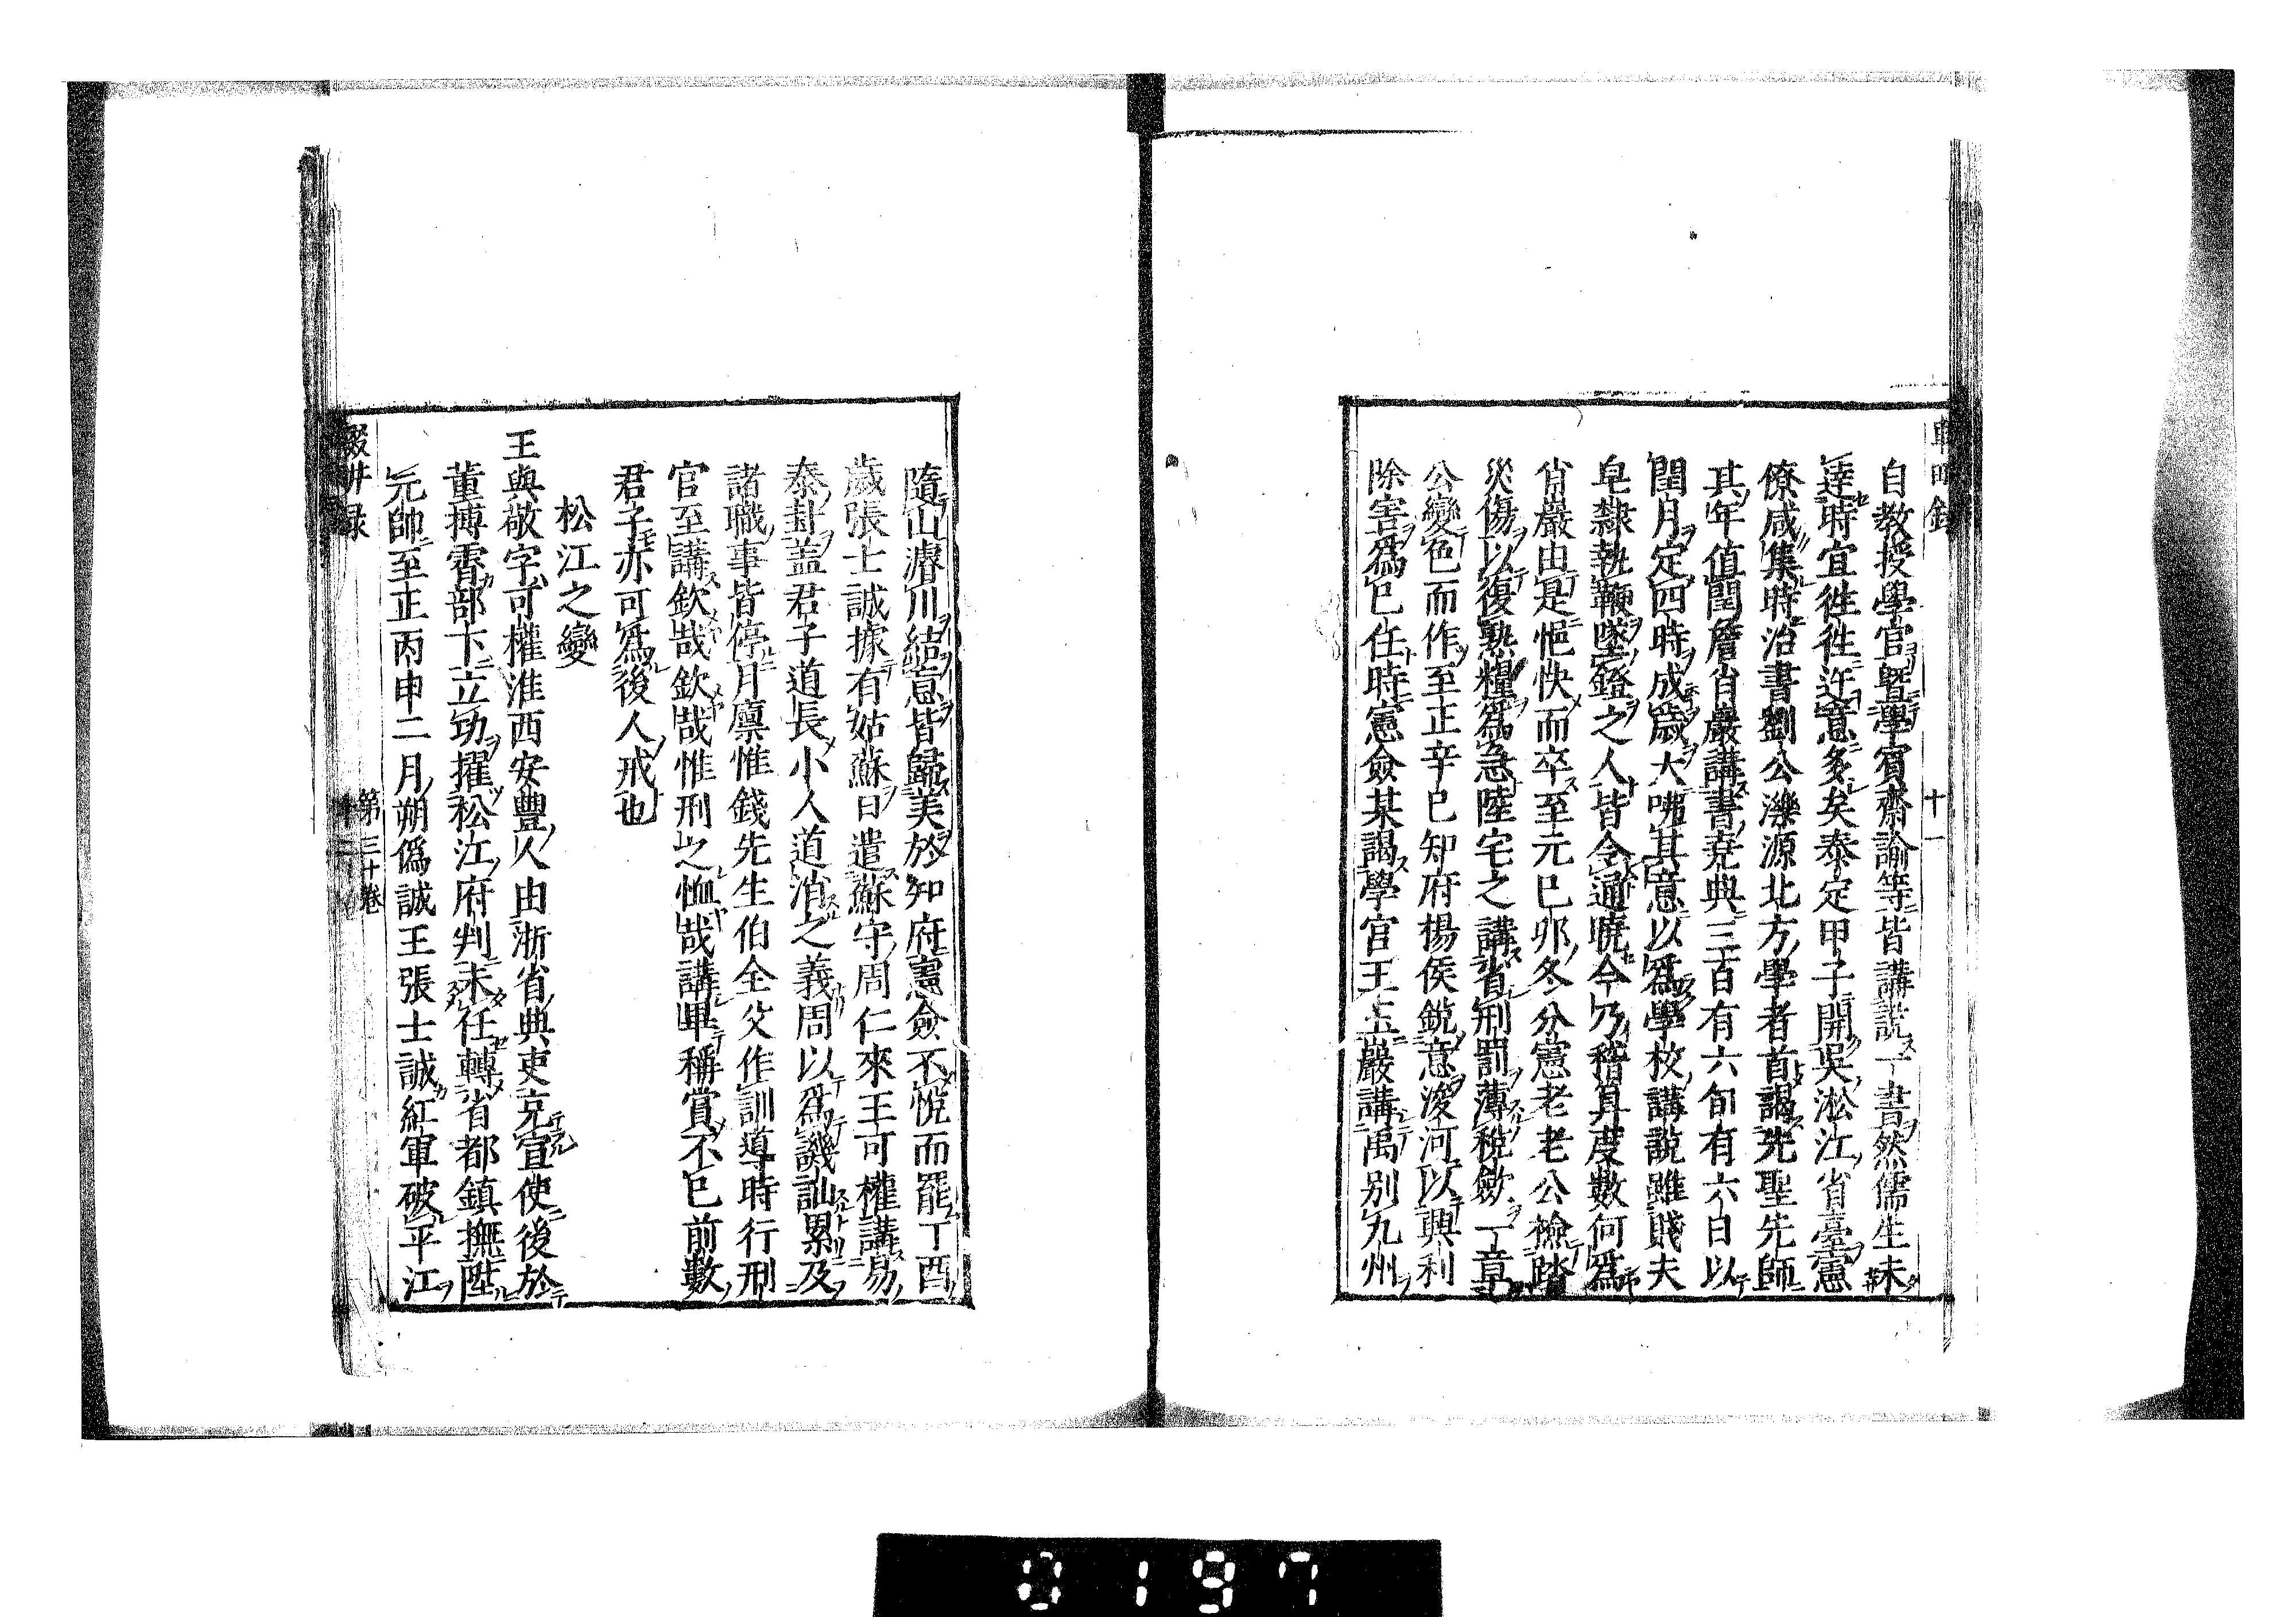 自教授學官暨學賓齋諭等皆講說一書然儒生未
達時宜徃徃迕意多矣泰定甲子開吳淞江省臺憲
僚咸集時治書劉公濼源北方學者首謁先聖先師
其年值閏詹肖巖講書堯典三百有六旬有六日以
閏月定四時成歲大咈其意以爲學校講說雖賤夫
皂隸執鞭墜鐙之人皆令通曉今乃稽算度數何爲
肖巖由是悒怏而卒至元己卯冬分憲老老公檢踏
災傷以復熟糧爲急陸宅之講省刑罰薄稅歛一章
公變色而作至正辛巳知府楊侯銳意浚河以興利
除害爲己任時憲僉某謁學官王玉巖講禹別九州
隨山濬川結意皆歸美於知府憲僉不悅而罷丁酉
歲張士誠據有姑蘇日遣蘇守周仁來王可權講易
泰卦盖君子道長小人道消之義周以爲譏訕累及
諸職事皆停月廪惟錢先生伯全父作訓導時行刑
官至講欽哉欽哉惟刑之恤哉講畢稱賞不已前數
君子亦可爲後人戒也
松江之變
王與敬字可權淮西安豐人由浙省典吏充宣使後於
董摶霄部下立功擢松江府判未任轉省都鎮撫陞
元帥至正丙申二月朔僞誠王張士誠紅軍破平江
輟畊录
第三十卷
十一